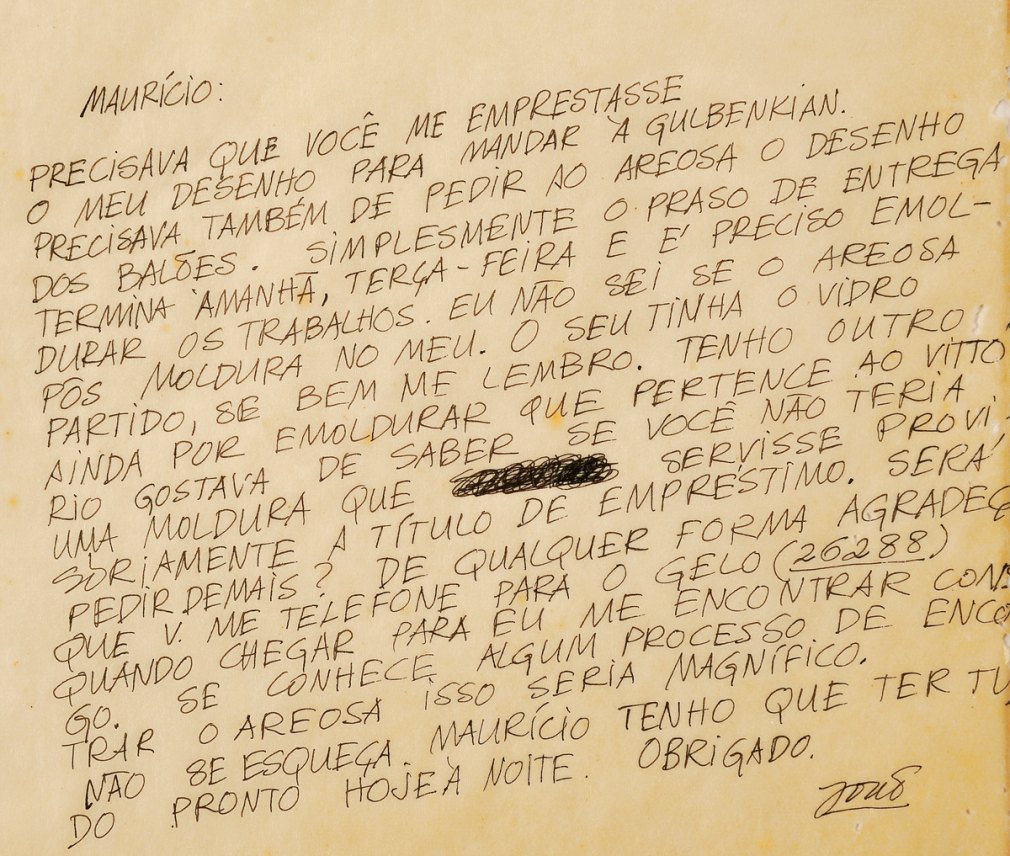 MAURÍCIO:
PRECISAVA QUE VOCÊ ME EMPRESTASSE
O MEU DESENHO PARA MANDAR À GULBENKIAN.
PRECISAVA TAMBÉM DE PEDIR AO AREOSA O DESENHO
DOS BALÕES. SIMPLESMENTE O PRASO DE ENTREGA
TERMINA AMANHÃ, TERÇA-FEIRA E É PRECISO EMOL-
DURAR OS TRABALHOS. EU NÃO SEI SE O AREOSA
PÔS MOLDURA NO MEU. O SEU TINHA O VIDRO
PARTIDO, SE BEM ME LEMBRO. TENHO OUTRO
AINDA POR EMOLDURAR QUE PERTENCE AO VITTO
RIO GOSTAVA DE SABER SE VOCÊ NÃO TERIA
UMA MOLDURA QUE SERVISSE PROVI-
SÒRIAMENTE A TÍTULO DE EMPRÉSTIMO. SERÁ
PEDIR DEMAIS? DE QUALQUER FORMA AGRADEÇ
QUE V. ME TELEFONE PARA O GELO (26288)
QUANDO CHEGAR PARA EU ME ENCONTRAR CONSI
GO. SE CONHECE ALGUM PROCESSO DE ENCON
TRAR O AREOSA ISSO SERIA MAGNÍFICO.
NÃO SE ESQUEÇA. MAURÍCIO TENHO QUE TER TU
DO PRONTO HOJE À NOITE. OBRIGADO.